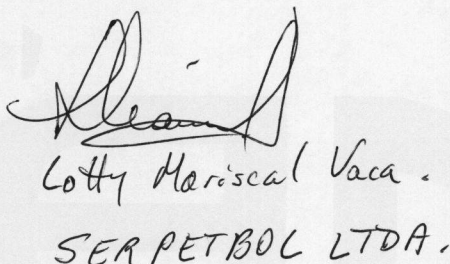 Lotty Mariscal Vaca.
SERPETBOL LTDA.